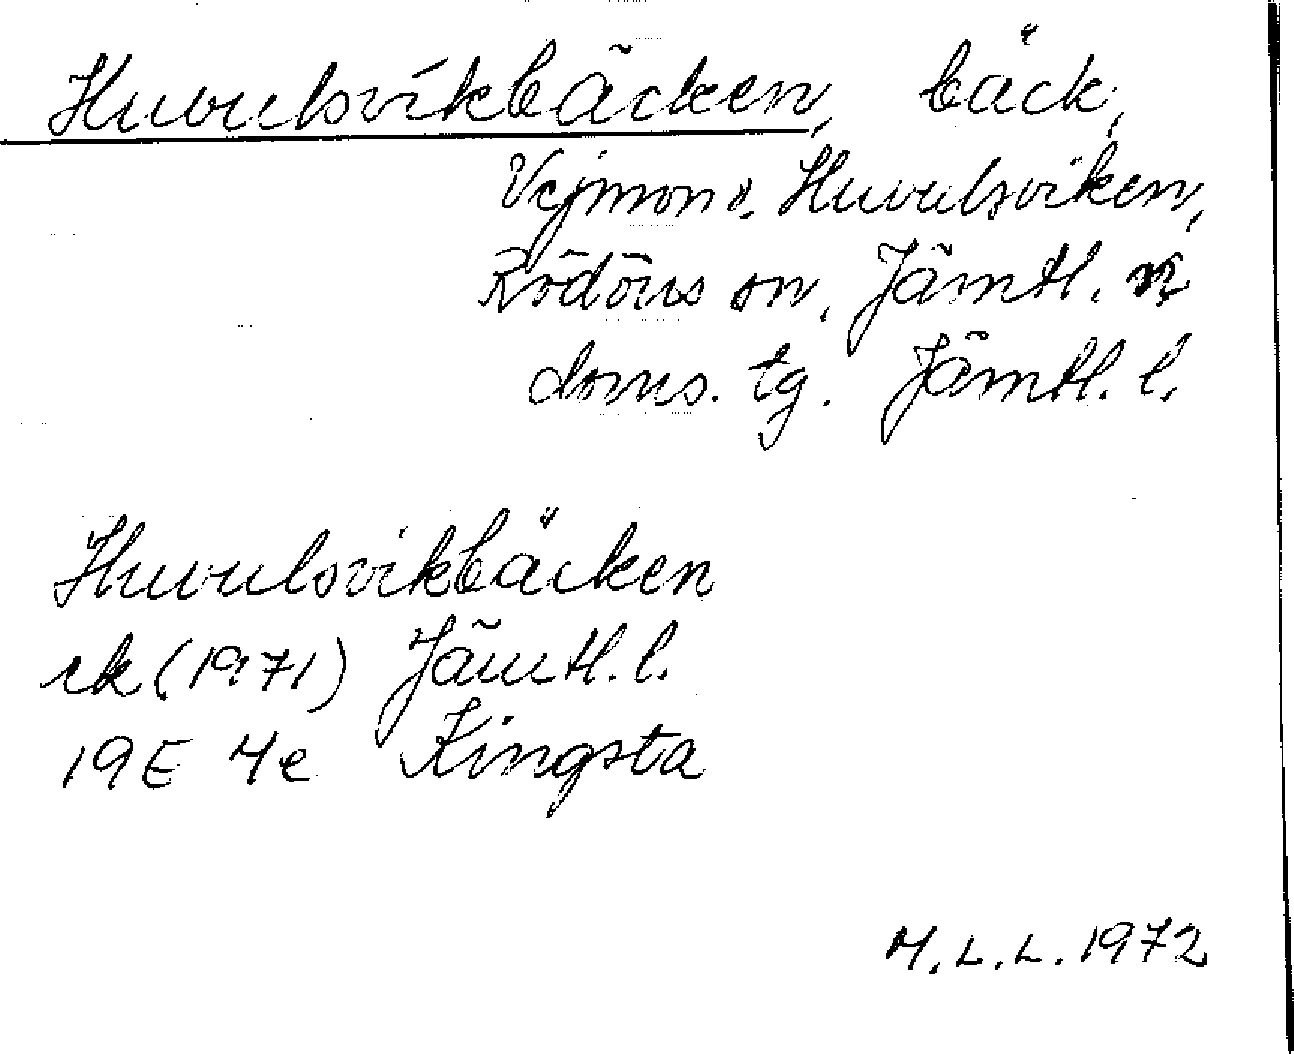 Huvulsvikbäcken, bäck,
Vejmon o. Huvulsviken,
Rödöns sn, Jämtl. n
doms. tg. Jämtl. l.
Huvulsvikbäcken
ek (1971) Jämtl. l.
19E 4e Kingsta
M.L.L. 1972